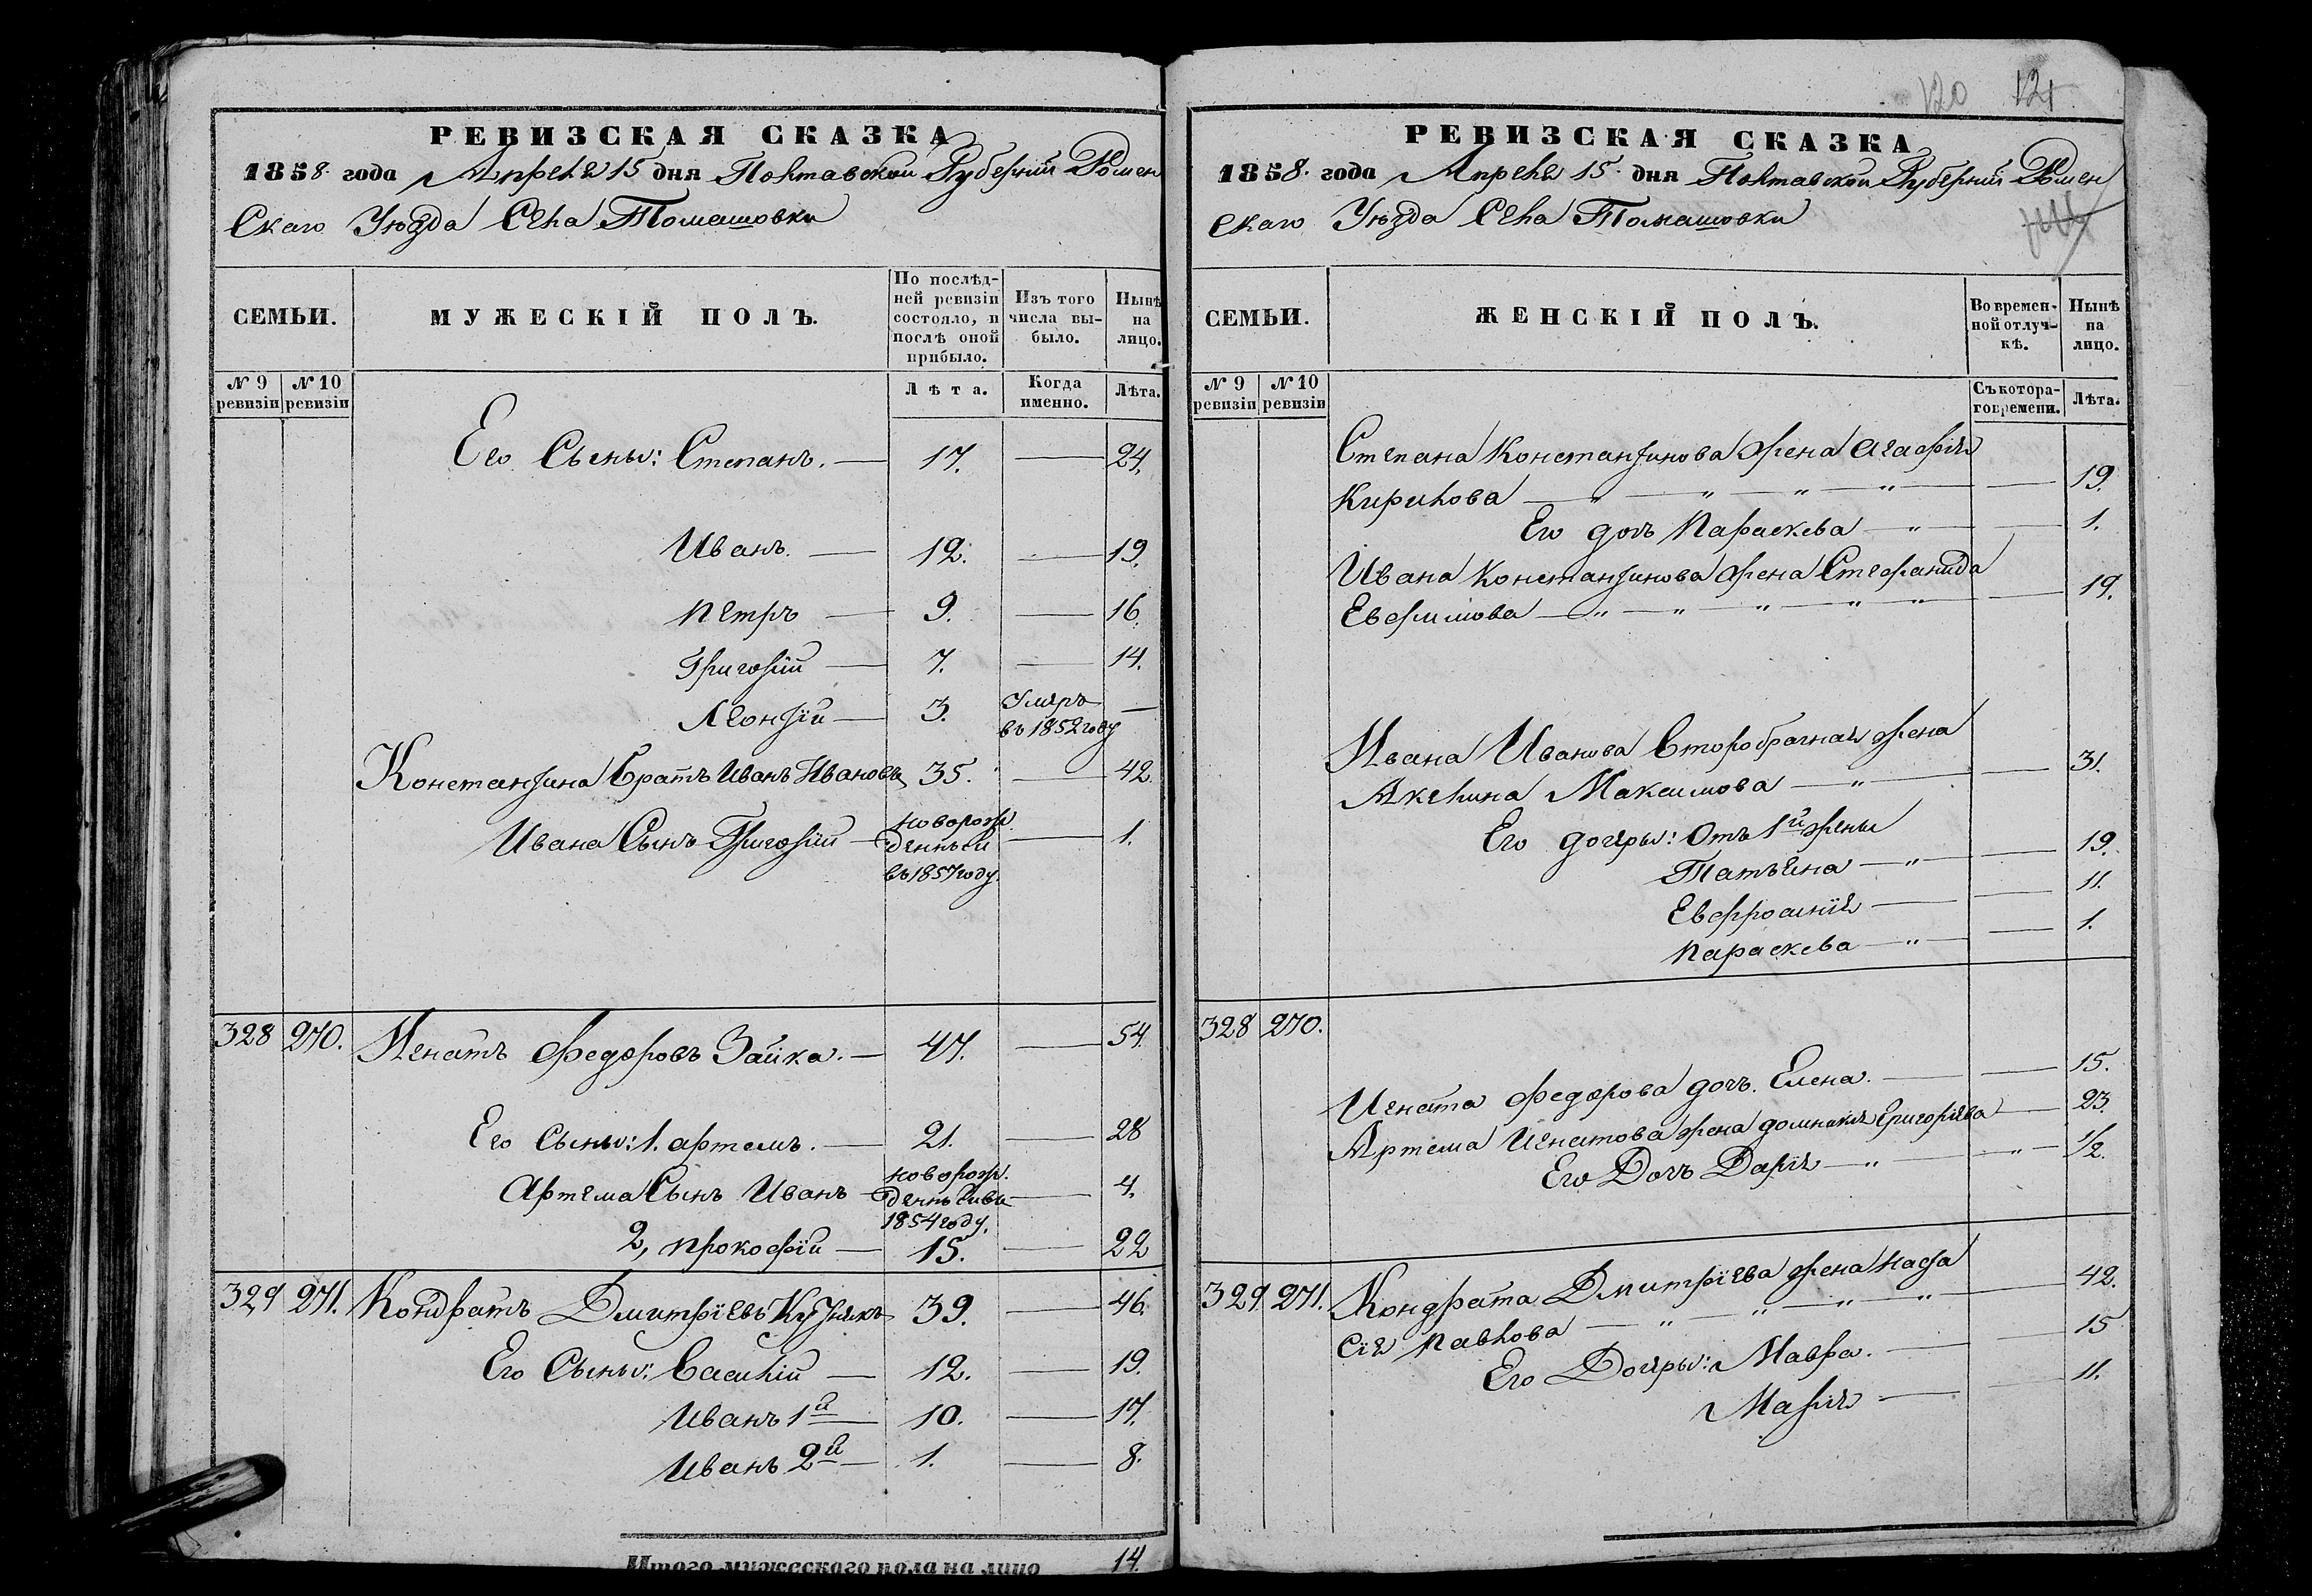 РЕВИЗСКАЯ СКАЗКА
1858. года Апреля 15 дня Полтавской Губернии Ромен
скаго Уѣзда Села Томашовки
СЕМЬИ.
МУЖЕСКІЙ ПОЛЪ.
По послѣд-
ней ревизіи
состояло, и
послѣ оной
прибыло.
Изъ того
числа вы-
было.
Нынѣ
на
лицо.
№ 9
ревизіи
№ 10
ревизіи
Лѣта.
Когда
именно.
Лѣта.
Его Сыны: Степанъ. — 17. — 24.
Иванъ. — 12. — 19.
Петръ — 9. — 16.
Григорій — 7. — 14.
Леонтій — 3. Умеръ въ 1852 году —
Константина братъ Иванъ Ивановъ 35. — 42.
Ивана Сынъ Григорій — новорож
денный
въ 1857 году. — 1.
328 270. Игнатъ Федоровъ Зайка. — 47. — 54.
Его Сыны: 1. Артемъ. — 21. — 28
Артема Сынъ Иванъ — новорож.
денный въ
1854 году. — 4.
2, Прокофій — 15. — 22
329 271. Кондратъ Дмитріевъ 39. — 46.
Его Сыны: Василій — 12. — 19.
Иванъ 1й — 10. — 17.
Иванъ 2й — 1. — 8.
Итого мужескаго пола на лицо 14.
120 121
РЕВИЗСКАЯ СКАЗКА
1858. года Апреля 15. дня Полтавской Губерніи Ромен
скаго Уѣзда Села Томашовки
СЕМЬИ.
ЖЕНСКІЙ ПОЛЪ.
Во времен-
ной отлуч-
кѣ.
Нынѣ
на
лицо.
№ 9
ревизіи
№ 10
ревизіи
Съ котора-
го времени.
Лѣта.
Степана Константинова жена Агафія
Кирилова — " — " — " — " — 19.
Его дочь Параскева — " — 1.
Ивана Константинова жена Стефанида
Евфимова — " — " — " — " — " — 19.
Ивана Иванова второбрачная жена
Акелина Максимова — " — 31.
Его дочери: Отъ 1й жены
Татьяна — " — 19.
Евфросинія — 11.
Параскева — " — 1.
328 270.
Игната Федорова дочь. Елена. — 15.
Артема Игнатова жена Домникія Григоріева — 23.
Его Дочь Дарія — " — " — 1/2.
329. 271. Кондрата Дмитріева жена Наста
сія Павлова — " — " — " — " — 42.
Его Дочери: Мавра. — 15
Марія — 11.